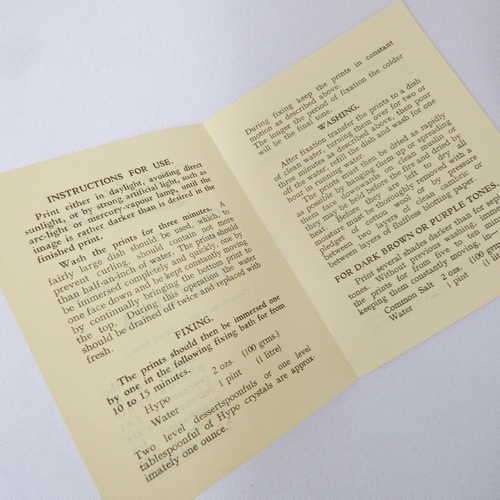 INSTRUCTIONS FOR USE.
Print either in daylight, avoiding direct
sunlight, or by strong artificial light, such as
arc-light or mercury-vapour lamp, until the
image is rather darker than is desired in the
finished print.
Wash the prints for three minutes. A
fairly large dish should be used, which, to
prevent curling, should contain not more
than half-an-inch of water. The prints should
be immersed completely and quickly, one by
one face down and be kept constantly moving
by continually bringing the bottom print to
the top. During this operation the water
should be drained off twice and replaced with
fresh.
FIXING.
The prints should then be immersed one
by one in the following fixing bath for from
10 to 15 minutes.
Hypo 2 ozs. (100 grms.)
Water 1 pint (1 litre)
Two level dessertspoonfuls or one level
tablespoonful of Hypo crystals are approx-
imately one ounce.
During fixing keep the prints in constant
motion as described above.
The longer the period of fixation the colder
will be the final tone.
WASHING.
After fixation transfer the prints to a dish
of clean water, turning them over for two or
three minutes as described above, then pour
off the water, refill the dish and wash for one
hour in running water.
The prints must then be dried as rapidly
as possible by
them face upwards on clean muslin or
they may be held before the fire and dried by
heat. Before they are left to dry, all
moisture must be thoroughly removed with a
pledget of cotton wool or by pressure
between layers of fluffless blotting paper.
FOR DARK BROWN OR PURPLE TONES.
Print several shades darker than for sepia
tones, without previous washing, immerse
the prints for from five to ten minutes,
keeping them constantly moving
Common Salt 2 ozs. (100
Water 1 pint (1